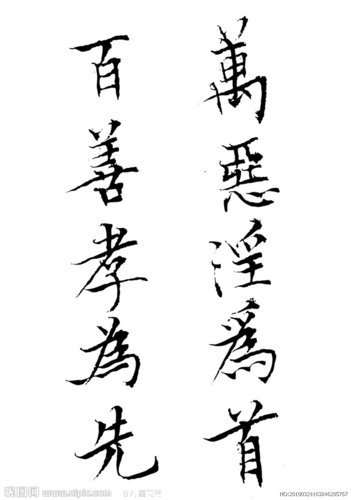 萬惡淫為首
百善孝為先
昵图网 www.nipic.com
NO:20190324163946205767